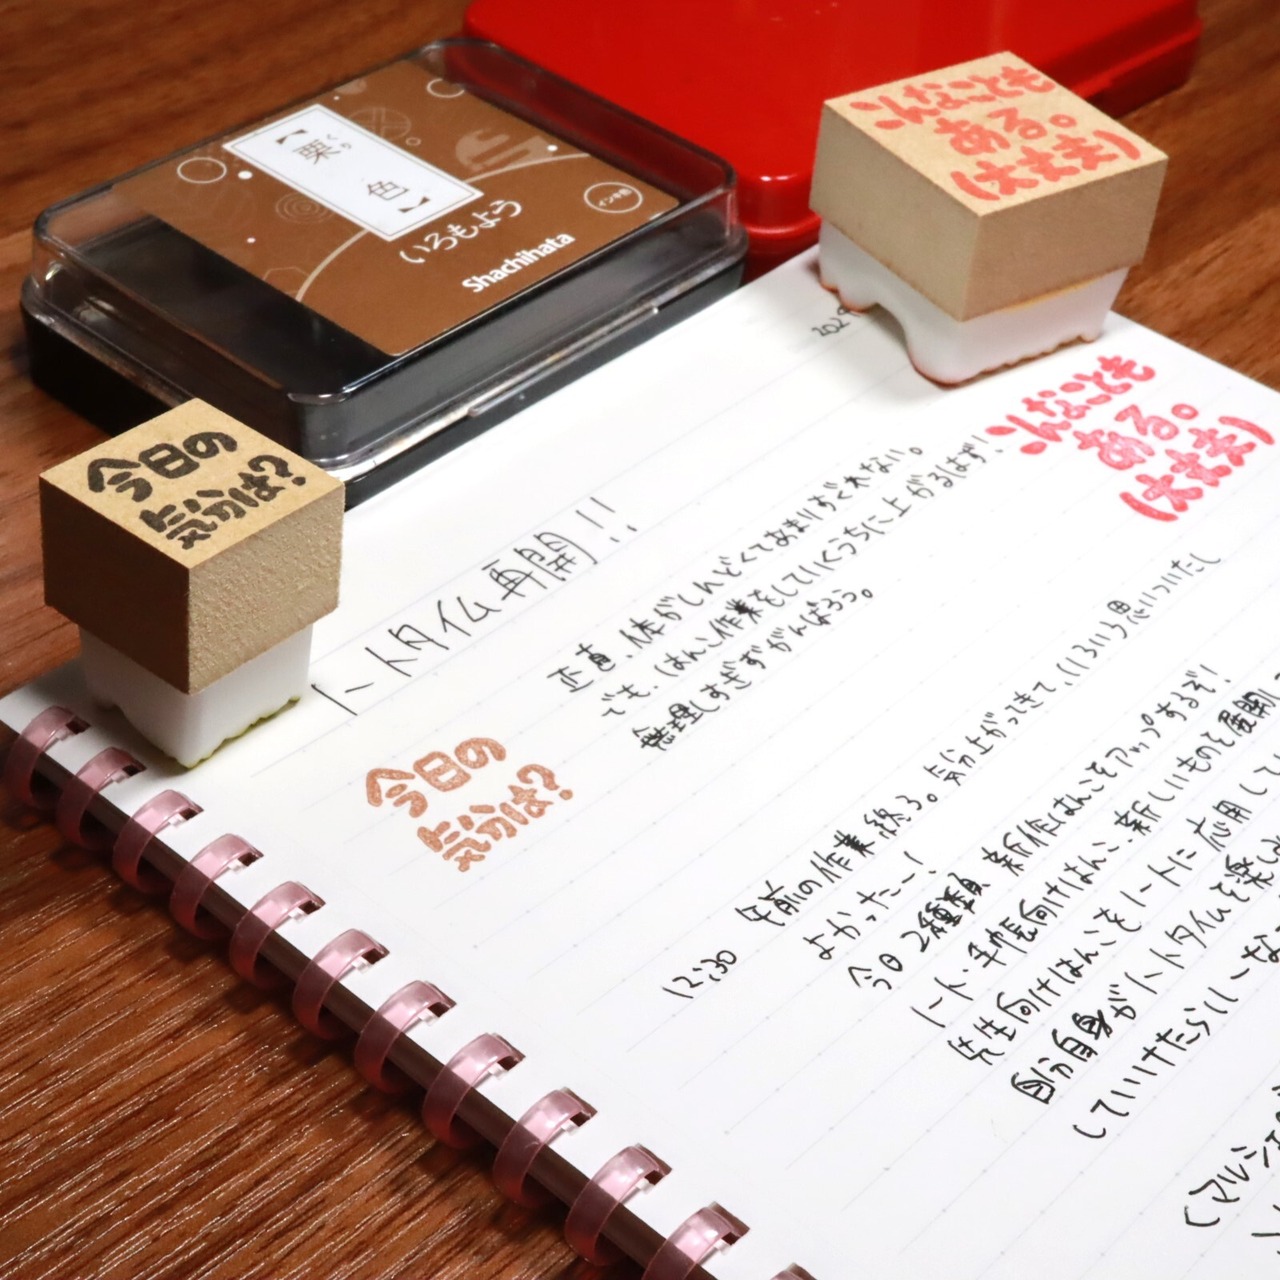 【栗色】
くり
いろもよう
Shachihata
インキ色
こんなことも
ある。
(大丈夫)
今日の
気分は?
202
こんなことも
ある。
(大丈夫)
ノートタイム再開!!
正直、体がしんどくてあまりすぐれない。
でも、はんこ作業をしていくうちに上がるはず!
無理しすぎずがんばろう。
今日の
気分は?
12:30 午前の作業終る。気分上がってきて、いろいろ思いついたし
よかったー!
今日2種類 新作はんこをアップするぞ!
ノート・手帳向けはんこ、新しいもので展開し
先生向けはんこをノートに応用してい
自分自身がノートタイムで楽し
していけたらいーな
(マルシェ